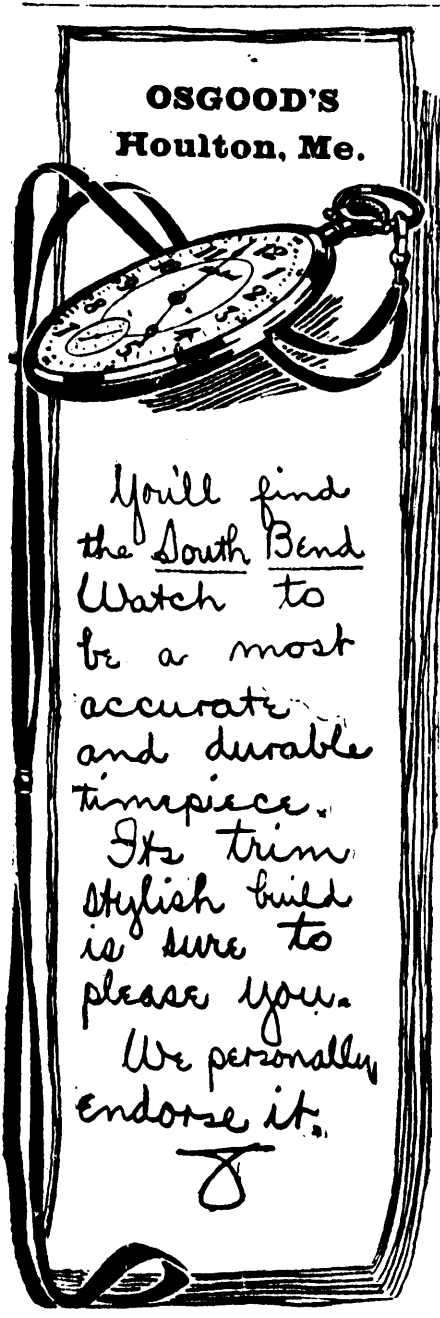 OSGOOD'S
Houlton, Me.
You'll find
the South Bend
Watch to
be a most
accurate
and durable
timepiece.
Its trim
stylish build
is sure to
please you.
We personally
endorse it.